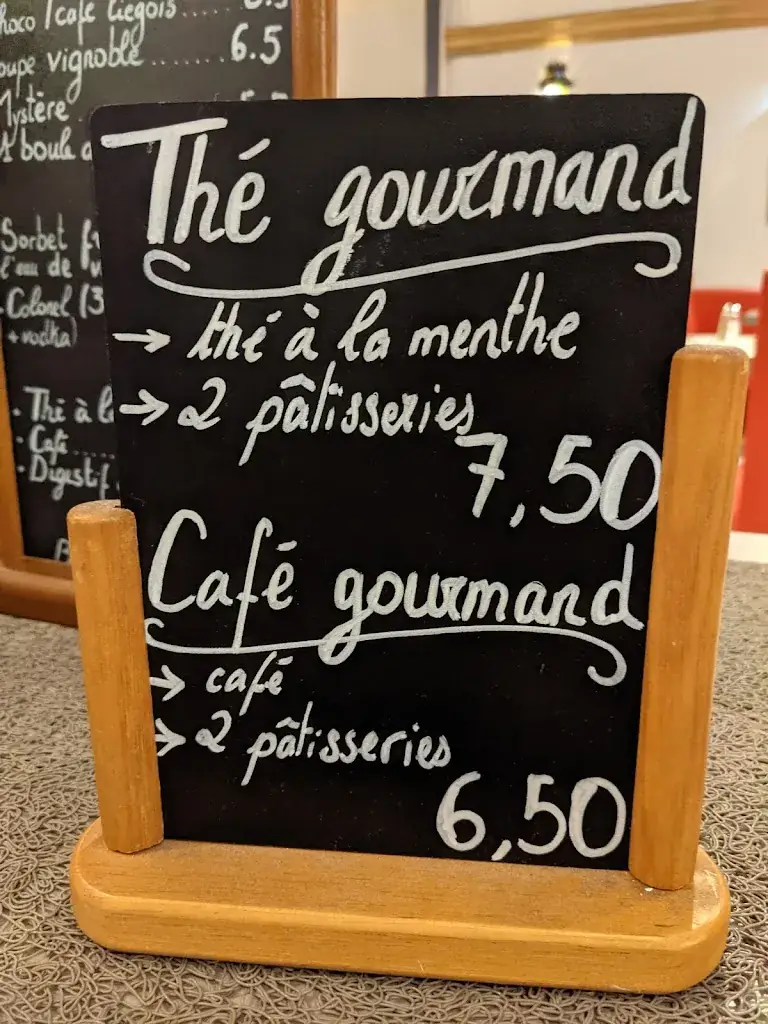 choco / café liégois ......
coupe vignoble ........ 6.5
Mystère
boule
Sorbet
l'eau de
Colonel (3
+ vodka)
- Thé à
- Café ....
- Digestif
Thé gourmand
→ thé à la menthe
→ 2 pâtisseries
7,50
Café gourmand
→ café
→ 2 pâtisseries
6,50